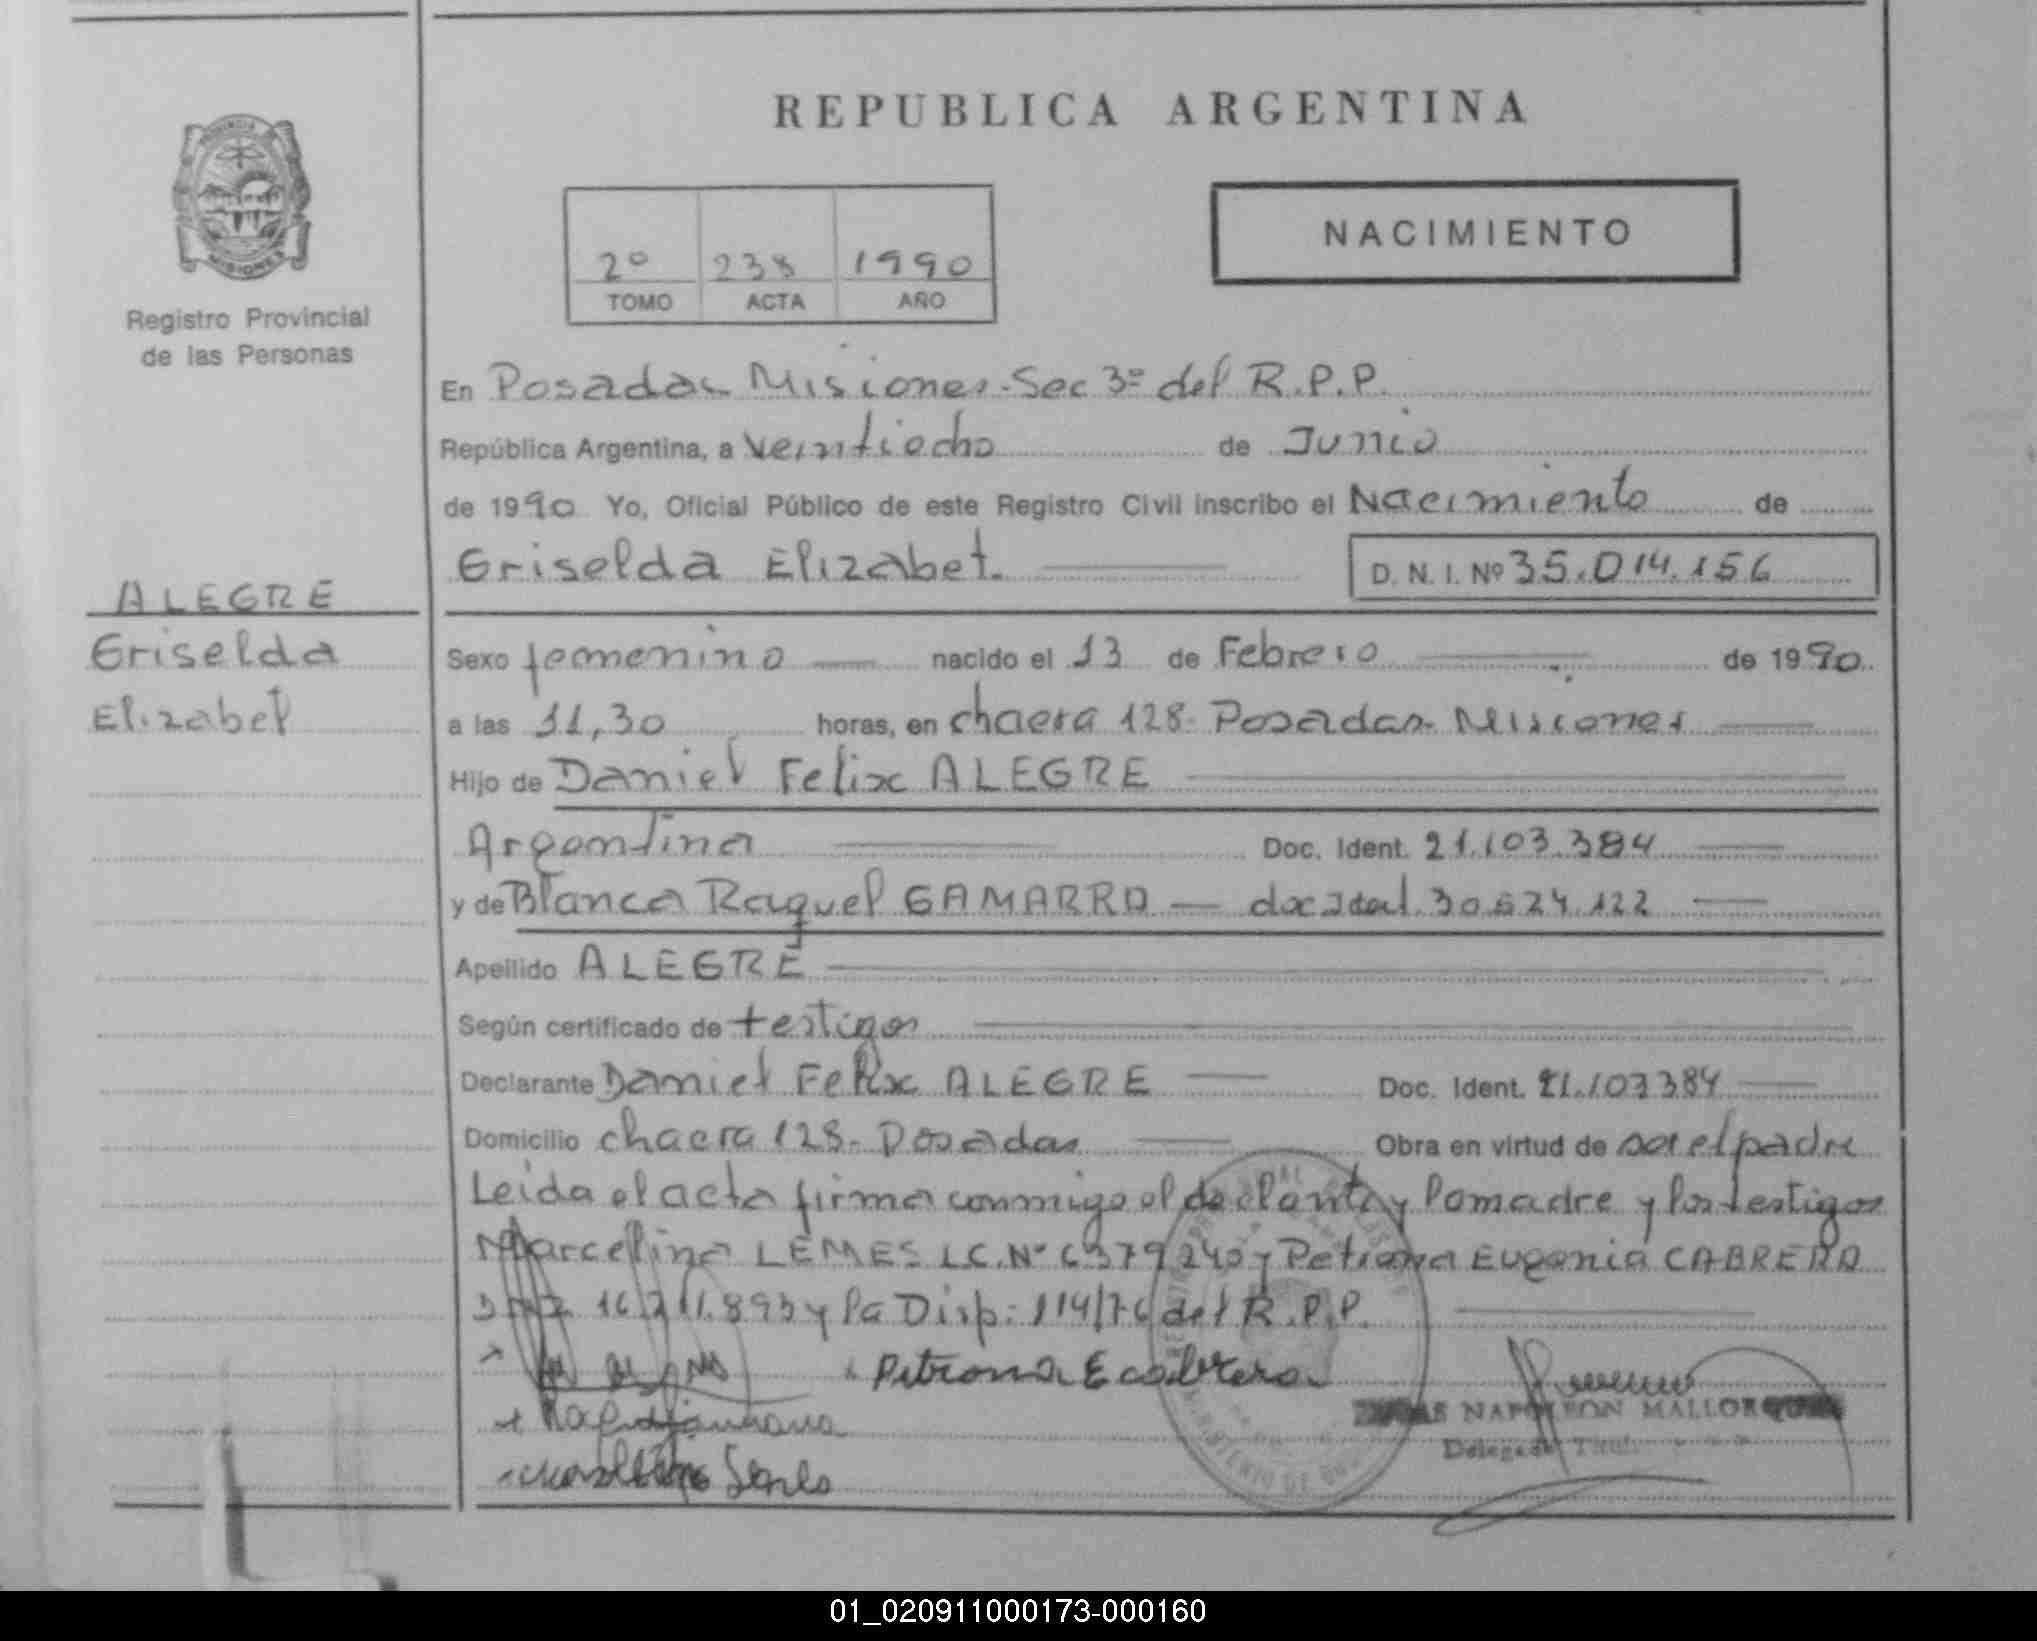 REPUBLICA ARGENTINA
PROVINCIA
MISIONES
Registro Provincial
de las Personas
2º 238 1990
TOMO ACTA AÑO
NACIMIENTO
En Posadas Misiones-Sec 3º del R.P.P.
República Argentina, a Veintiocho de Junio
de 1990 Yo, Oficial Público de este Registro Civil inscribo el Nacimiento de
Griselda Elizabet.
D. N. I. Nº 35.014.156
ALEGRE
Griselda
Elizabet
Sexo femenino nacido el 13 de Febrero de 1990
a las 11,30 horas, en chacra 128- Posadas- Misiones
Hijo de Daniel Felix ALEGRE
Argentina Doc. Ident. 21.103.384
y de Blanca Raquel GAMARRA — doc ident 30.624.122
Apellido ALEGRE
Según certificado de testigos
Declarante Daniel Felix ALEGRE Doc. Ident. 21.103384
Domicilio chacra 128- Posadas Obra en virtud de ser el padre
Leida el acta firma conmigo el declante y la madre y los testigos
Marcelina LEMES LC.Nº 6379240 y Petrona Eugenia CABRERA
y la Disp: 114/76 del R.P.P.
Petrona E cabrera
NAPOLEON MALLORQUIN
Delegado Titular
01_020911000173-000160